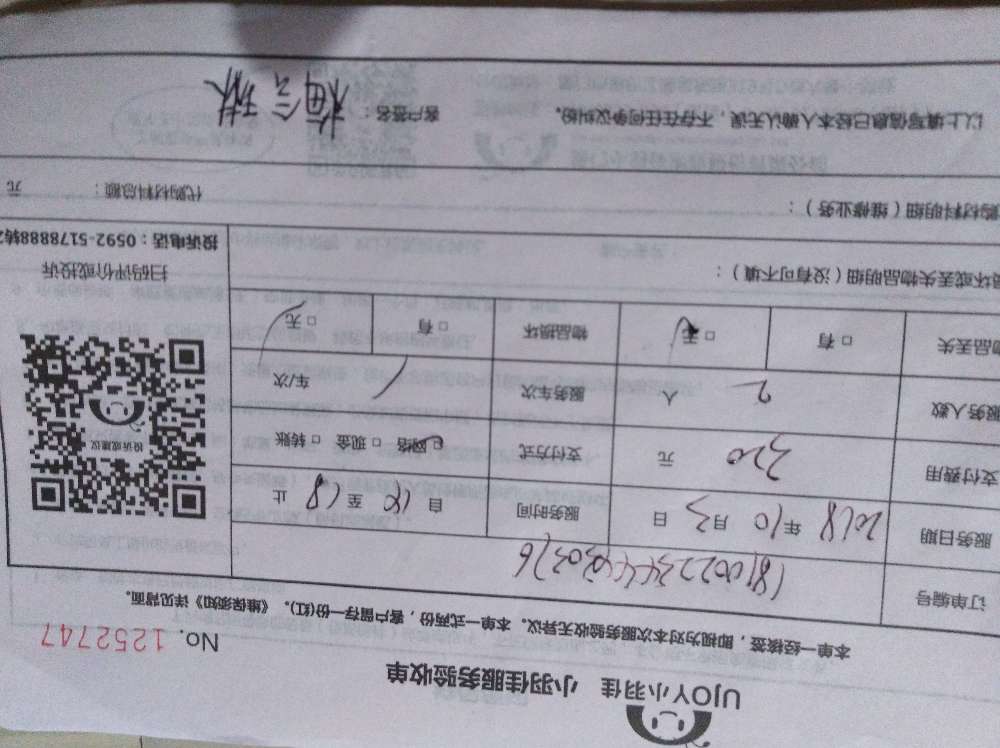 UJOY小羽佳 小羽佳服务验收单
No. 1252747
本单一经接签，即视为对本次服务验收无异议。本单一式两份，客户留存一份(红)。《维保须知》详见背面。
订单编号
服务日期 2018 年 10 月 3 日 服务时间 自 至 18 止
支付费用 320 元 支付方式 网络 □ 现金 □ 转账
服务人数 2 人 服务车次 1 车/次
物品丢失 □ 有 □ 无 物品损坏 □ 有 □ 无
投诉或建议
扫码评价或投诉
投诉电话：0592-5178888转
损坏或丢失物品明细（没有可不填）：
购材料明细（维修业务）： 代购材料总额： 元
以上填写信息已经本人确认无误，不存在任何争议纠纷。 客户签名：